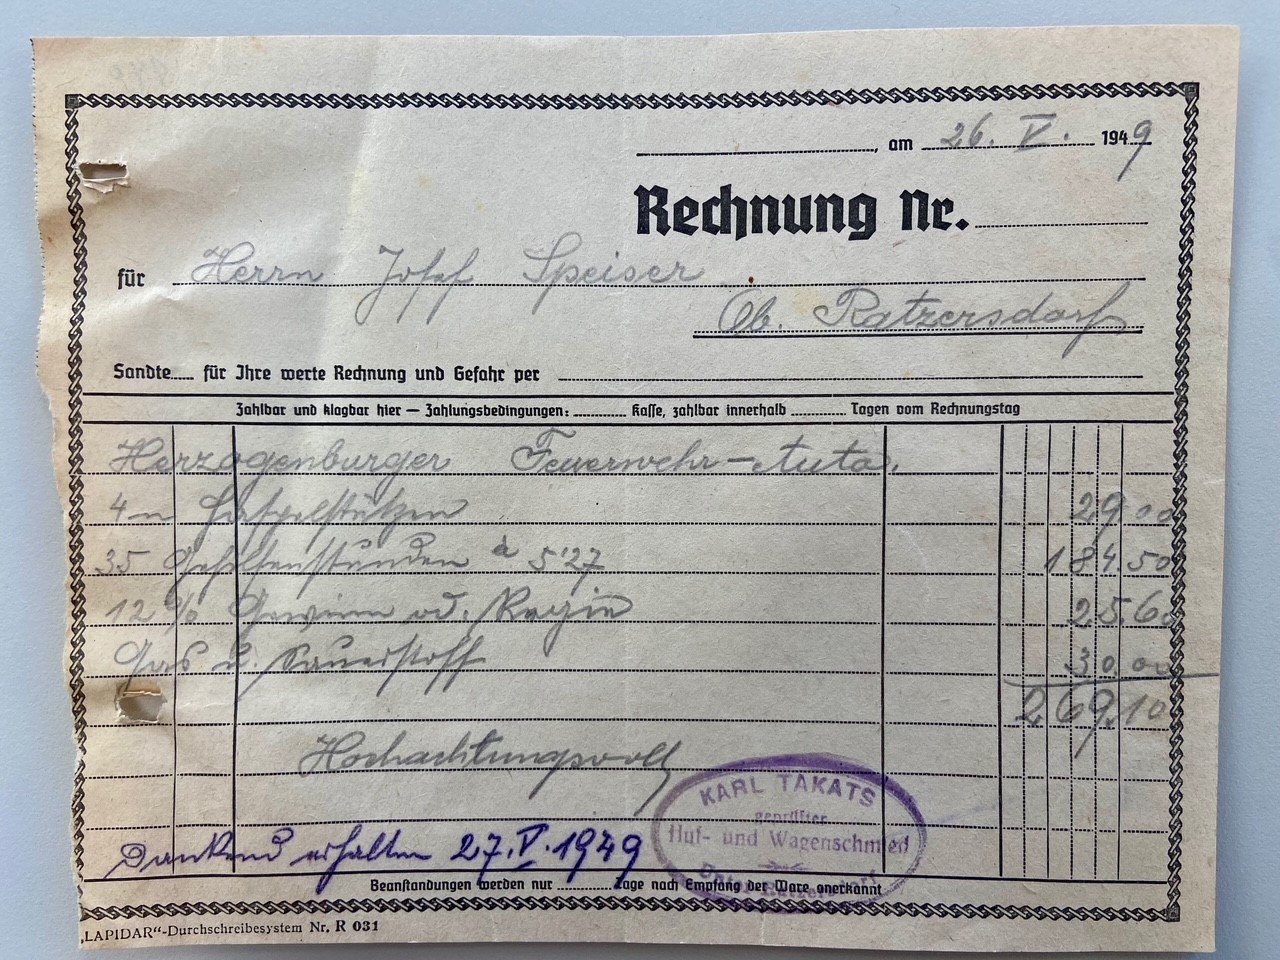 , am 26. V. 1949
Rechnung Nr.
für Herrn Josef Speiser
Ob. Ratzersdorf
Sandte für Ihre werte Rechnung und Gefahr per
Zahlbar und klagbar hier — Zahlungsbedingungen: Kasse, zahlbar innerhalb Tagen vom Rechnungstag
Herzogenburger Feuerwehr-Auto.
4 29 00
35 Gehilfenstunden à 5'27 184.50
12 % Gewinn od. Regie 25.60
Gas u. Sauerstoff 30.00
269.10
Hochachtungsvoll
KARL TAKATS
geprüfter
Huf- und Wagenschmied
Unter Ratzersdorf
Dankend erhalten 27. V. 1949
Beanstandungen werden nur Tage nach Empfang der Ware anerkannt
„LAPIDAR“-Durchschreibesystem Nr. R 031